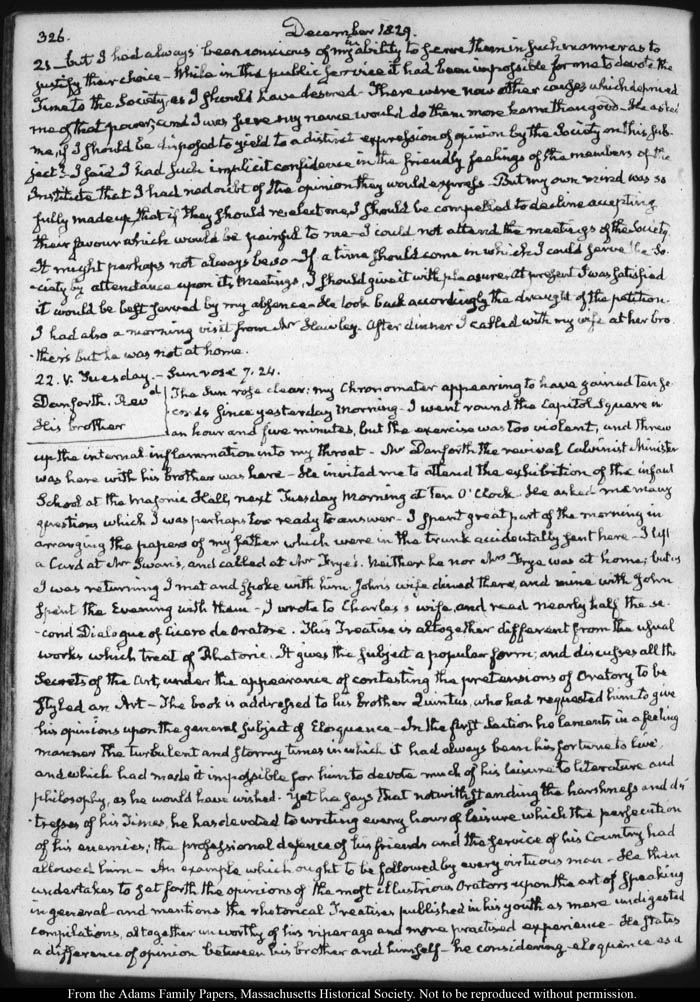 326.
December 1829.
21 - but I had always been conscious of my inability to serve them in such manner as to
justify their choice - While in the public service it had been impossible for me to devote the
Time to the Society as I should have desired - There were now other causes which deprived
me of that power; and I was sure my name would do them more harm than good - He asked
me, if I should be disposed to yield to a distinct expression of opinion by the Society on this sub-
ject? I said I had such implicit confidence in the friendly feelings of the members of the
Institute that I had no doubt of the opinion they would express. But my own mind was so
fully made up, that if they should re-elect me, I should be compelled to decline accepting
their favour which would be painful to me - I could not attend the meetings of the Society.
It might perhaps not always be so - If a time should come in which I could serve the So-
ciety by attendance upon its Meetings, I should give it with pleasure. At present I was satisfied
it would be best served by my absence - He took back accordingly the draught of the petition.
I had also a morning visit from Mr Hawley. After dinner I called with my wife at her bro-
thers but he was not at home.
22. V. Tuesday. - Sun rose 7. 24.
Danforth. Revd
His brother
The Sun rose clear; my Chronometer appearing to have gained ten se-
conds since yesterday morning - I went round the Capitol Square in
an hour and five minutes, but the exercise was too violent, and threw
up the internal inflammation into my throat - Mr Danforth the revival Calvinist Minister
was here with his brother was here - He invited me to attend the exhibition of the infant
School at the Masonic Hall, next Tuesday Morning at Ten O'Clock. He asked me many
questions which I was perhaps too ready to answer - I spent great part of the morning in
arranging the papers of my father which were in the trunk accidentally sent here - I left
a Card at Mr Swan's, and called at Mr Frye's. Neither he nor Mrs Frye was at home; but as
I was returning I met and spoke with him. John's wife dined there, and mine with John
spent the Evening with them - I wrote to Charles's wife, and read nearly half the se-
-cond Dialogue of Cicero de Oratore. This Treatise is altogether different from the usual
works which treat of Rhetoric. It gives the subject a popular form; and discusses all the
Secrets of the Art, under the appearance of contesting the pretensions of Oratory to be
styled an Art - The book is addressed to his brother Quintus, who had requested him to give
his opinions upon the general subject of Eloquence - In the first Section he laments in a feeling
manner the turbulent and stormy times in which it had always been his fortune to live,
and which had made it impossible for him to devote much of his leisure to literature and
philosophy, as he would have wished. Yet he says that notwithstanding the harshness and di-
-stresses of his Times, he has devoted to writing every hour of leisure which the persecution
of his enemies; the professional defence of his friends and the service of his Country had
allowed him - An example which ought to be followed by every virtuous man - He then
undertakes to set forth the opinions of the most illustrious Orators upon the art of speaking
in general and mentions the rhetorical Treatises published in his youth as mere undigested
compilations, altogether unworthy of his riper age and more practised experience - He states
a difference of opinion between his brother and himself - he considering eloquence as a
From the Adams Family Papers, Massachusetts Historical Society. Not to be reproduced without permission.